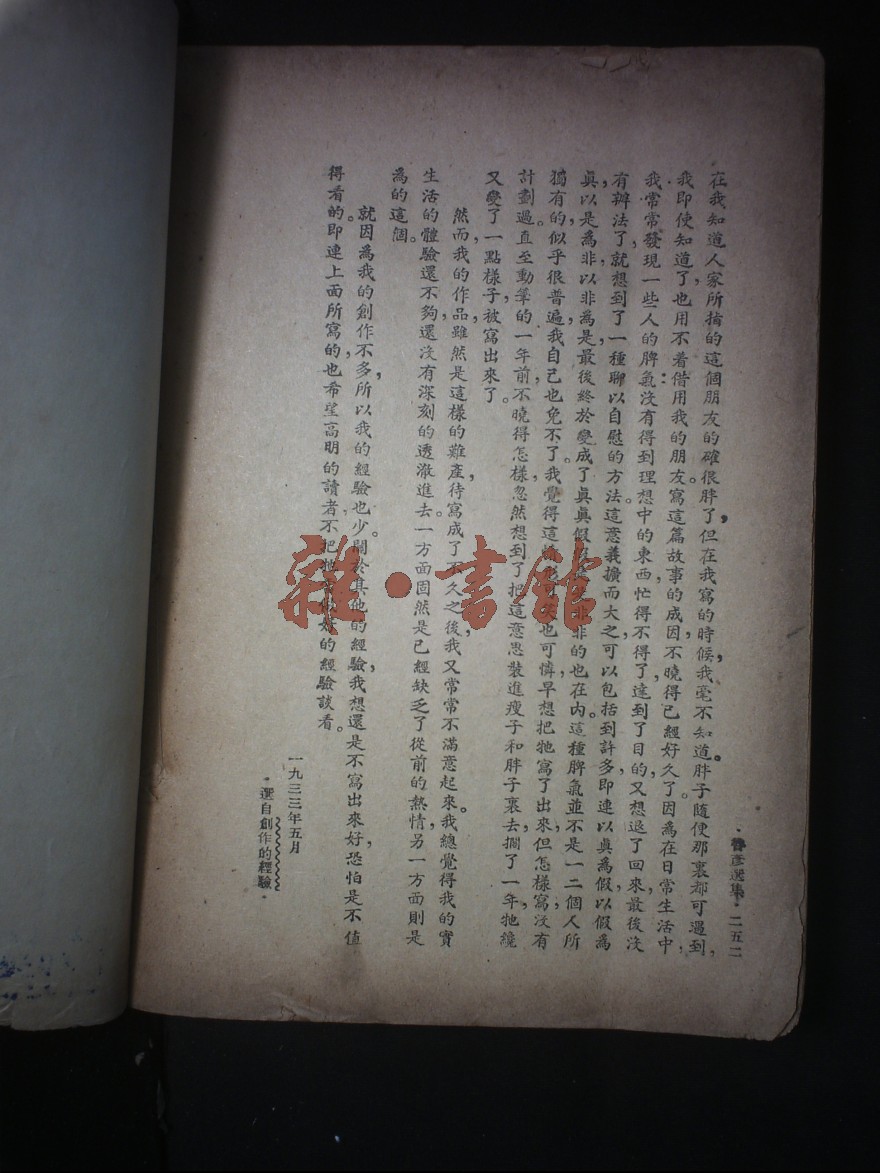 魯彥選集·二五二
在我知道人家所指的這個朋友的確很胖了，但在我寫的時候，我毫不知道。胖子隨便那裏都可遇到，
我即使知道了，也用不着借用我的朋友。寫這篇故事的成因，不曉得已經好久了。因爲在日常生活中，
我常常發現一些人的脾氣：沒有得到理想中的東西，忙得不得了，達到了目的，又想退了回來，最後沒
有辦法了，就想到了一種聊以自慰的方法。這意義擴而大之，可以包括到許多，即連以眞爲假，以假爲
眞，以是爲非，以非爲是，最後終於變成了眞眞假假是是非非的也在內。這種脾氣並不是一二個人所
獨有的，似乎很普遍，我自己也免不了。我覺得這也可憐，早想把牠寫了出來，但怎樣寫，沒有
計劃過。直至動筆的一年前，不曉得怎樣忽然想到了把這意思裝進瘦子和胖子裏去，擱了一年，牠纔
又變了一點樣子被寫出來了。
然而，我的作品，雖然是這樣的難產，待寫成了不久之後，我又常常不滿意起來。我總覺得我的實
生活的體驗還不夠，還沒有深刻的透澈進去。一方面固然是已經缺乏了從前的熱情，另一方面則是
爲的這個。
就因爲我的創作不多，所以我的經驗也少。關於其他的經驗，我想還是不寫出來好，恐怕是不値
得看的。即連上面所寫的，也希望高明的讀者不把牠當做好的經驗談看。
一九三三年五月
·選自創作的經驗·
雜·書館